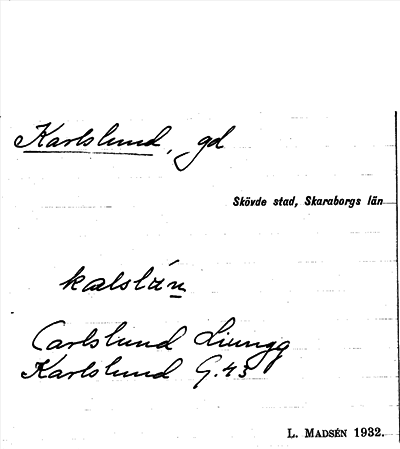 Karlslund, gd
Skövde stad, Skaraborgs län
kalslún
Carlslund Ljungg
Karlslund G.43
L. MADSÉN 1932.